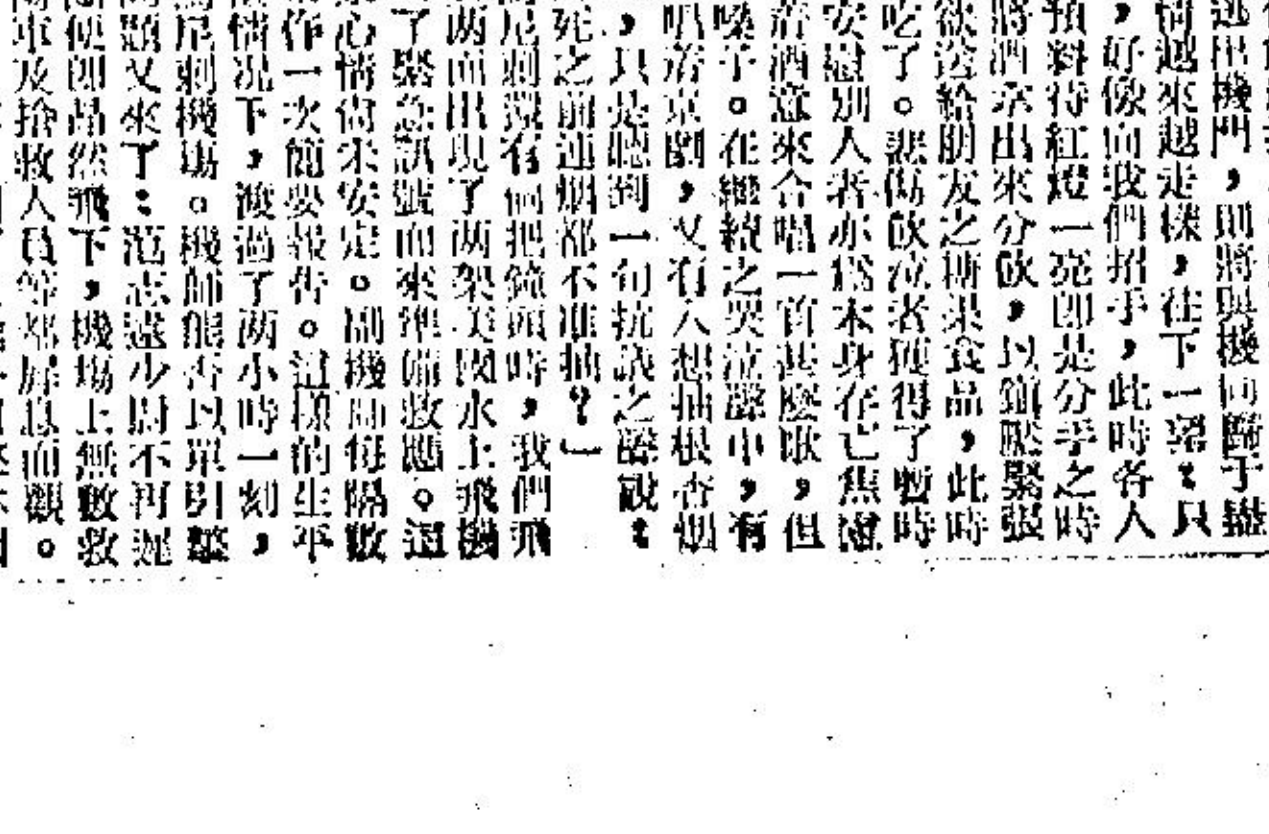 逃出機門,則將與機同歸于盡
情越來越走樣,往下一望:只
,好像向我們招手,此時各人
預料待紅燈一亮卽是分手之時
將酒拿出來分飮,以鎭壓緊張
欲送給朋友之糖果食品,此時
吃了。悲傷飮泣者獲得了暫時
安慰別人者亦爲本身存亡焦慮
着酒意來合唱一首甚麼歌,但
嗓子。在繼續之哭泣聲中,有
唱着京劇,又有人想抽根香烟
,只是聽到一句抗議之聲說:
死之前連烟都不准抽?」
尼剌還有個把鐘頭時,我們飛
两面出現了两架美國水上飛機
了緊急訊號而來準備救應。這
心情尙未安定。副機師每隔數
作一次簡要報吿。這樣的生平
情况下,渡過了两小時一刻,
馬尼剌機塲。機師能否以單引擎
問題又來了:范志遠少尉不再遲
便卽昂然飛下,機塲上無數救
車及搶救人員等都屏息而觀。